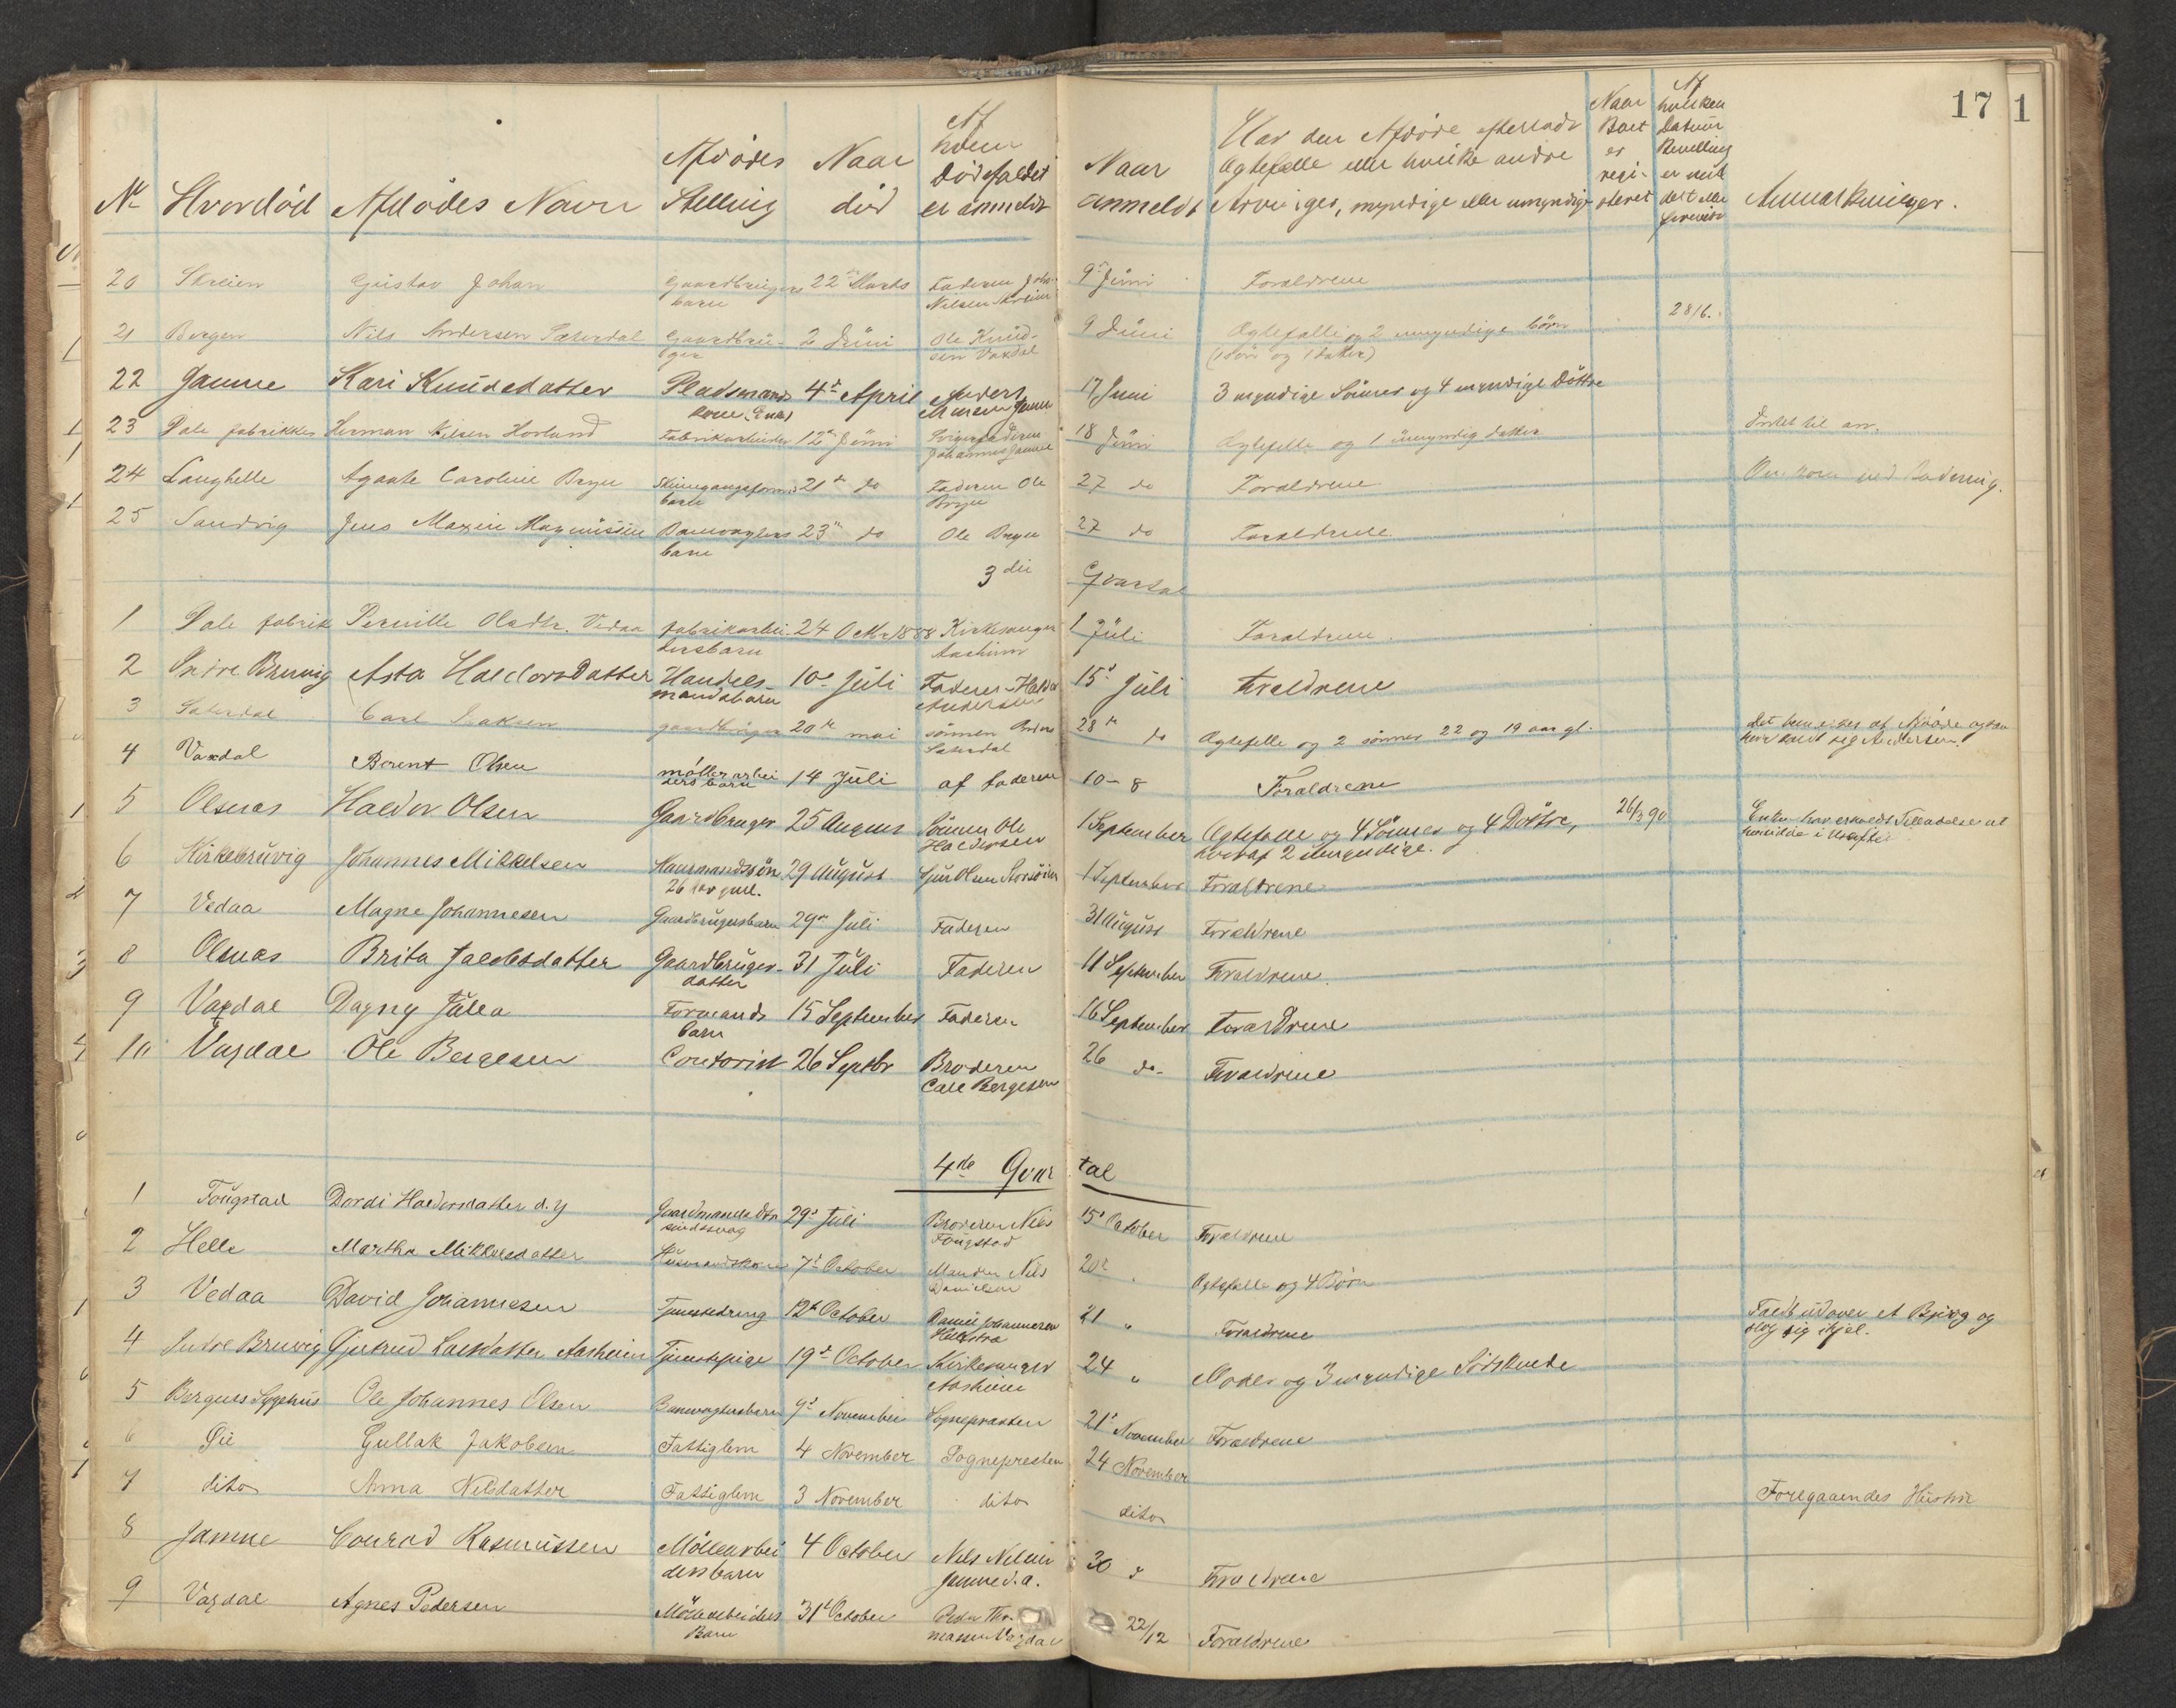 17 1
No Hvordöd Afdödes Navn Afdödes Stilling Naar död Af hvem Dödsfaldet er anmeldt Naar anmeldt Har den Afdöde efterladt Ægtefælle eller hvilke andre Arvinger, myndige eller umyndige Naar Boet er regi-steret Af hvilken Datum Bevilling er Anmærkninger.
20 Skreien Gustav Johan Gaardbrugers barn 22de Marts Faderen Joh. Nilsen Skreien 9de Juni Foraldrene
21 Bergen Nils Andersen Sæterdal Gaardbru-ger 2 Juni Ole Knud-sen Vaxdal 9 Juni Ægtefælle og 2 umyndige börn (1 Sön og 1 datter) 28/6.
22 Jamne Kari Knudsdatter Pladsmands kone (Enke) 4de April Anders Jamne 17 Juni 3 myndige Sönner og 4 myndige Döttre
23 Dale fabrikker Herman Nilsen Horland Fabrikarbeider 12te Juni Svigerfaderen Johannes Jamne 18 Juni Ægtefelle og 1 umyndig datter Intet til arv.
24 Langhelle Agaate Caroline Bryn barn 21de do Faderen Ole Bryn 27 do Foraldrene Omkom ved Badning.
25 Sandvig Jens Maxin Magnussen Banevogters barn 23de do Ole Bryn 27 do Foraldrene
3die Qvartal
1 Dale fabrik Pernille Olsdtr. Vedaa fabrikarbei-dersbarn 24 Oktr 1888 Kirkesanger Aasheim 1 Juli Foraldrene.
2 Indre Bruvig Asta Haldorsdatter Handels-mandsbarn 10de Juli Faderen Haldor Andersen 15de Juli Foraldrene
3 Sæterdal Carl Isaksen gaardbruger 20de mai sönnen Anders Sæterdal 28de do Ægtefelle og 2 sönner 22 og 19 aar gl.
4 Vaxdal Berent Olsen møllerarbei dersbarn 14 Juli af faderen 10-8 Foraldrene
5 Olsnæs Haldor Olsen Gaardbruger 25 August Sönnen Ole Haldorsen 1 September Ægtefælle og 4 Sönner og 4 Döttre, hvoraf 2 umyndige. 26/3 90 Enken har erholdt Tilladelse at hensidde i Uskiftet
6 Kirkebruvig Johannes Mikkelsen Huusmandssön 26 Aar gml. 29 August Sjur Olsen 1 September Foraldrene
7 Vedaa Magne Johannesen Gaardbrugersbarn 29de Juli Faderen 31 August Foraldrene
8 Olsnæs Brita Jacobsdatter Gaardbruger-datter 31 Juli Faderen 11 September Foraldrene
9 Vaxdal Dagny Julia Formands barn 15 September Faderen 16 September Foraldrene
10 Vaxdal Ole Bergesen Contorist 26 Septbr Broderen Carl Bergesen 26 do- Foraldrene
4de Qvartal
1 Fougstad Dordi Haldorsdatter d.y Gaardmands Dtr sindssvag 29de Juli Broderen Nils Fougstad 15de October Foraldrene
2 Helle Martha Mikkelsdatter Huusmandskone 7de October Manden Nils Danielsen 20de " Ægtefælle og 4 Börn
3 Vedaa David Johannesen Tjenestedreng 12te October Daniel Johannesen 21 " Foraldrene Faldt udover et Bjerg og slog sig ihjel.
4 Indre Bruvig Gjertrud Larsdatter Aasheim Tjenestepige 19de October Kirkesanger Aasheim 24 " Moder og 3 myndige Sødskende
5 Bergens Sygehus Ole Johannes Olsen Banevogtersbarn 9de November Sognepræsten 21de November Foraldrene
6 Gullak Jakobsen Fattiglem 4 November Sognepresten 24 November
7 ditos Anna Nilsdatter Fattiglem 3 November ditos ditos Foregaaendes Hustru
8 Jamne Conrad Rasmussen Möllearbei dersbarn 4 October Nels Nelsen Jamne d.a. 30 " Foraldrene
9 Vaxdal Agnes Pedersen Möllearbeiders Barn 31te October Peder Tho-massen Vaxdal 22/12 Foraldrene